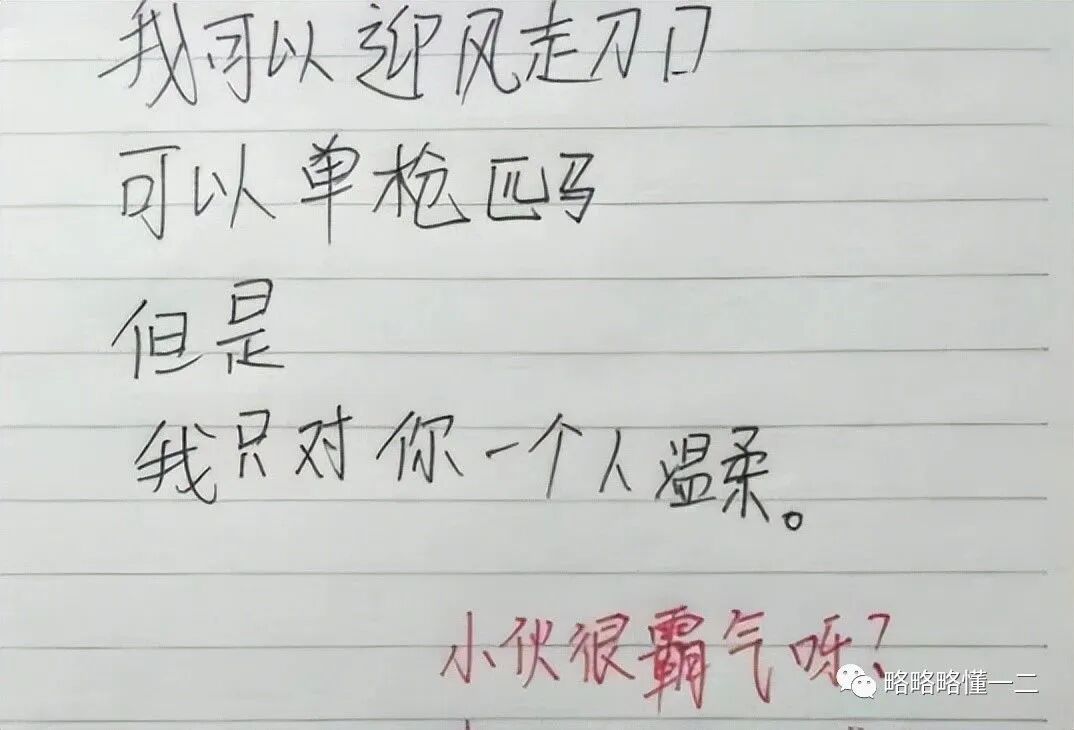 我可以迎风走刀口
可以单枪匹马
但是
我只对你一个人温柔。
小伙很霸气呀?
略略略懂一二